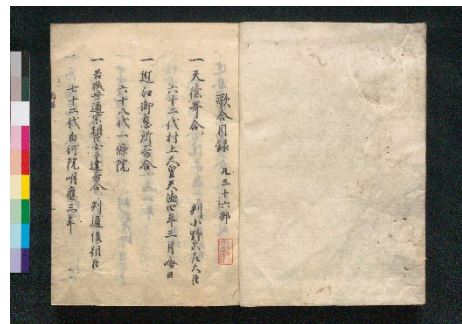 歌合目録 凡三十六部
一 天徳哥合 判小野宮左大臣
六十二代村上天皇天徳四年三月晦日
一 近江御息所哥合
六十八代一條院
一 若狭守通宗朝臣女子達哥合 判通俊朝臣
七十二代白河院 應三年